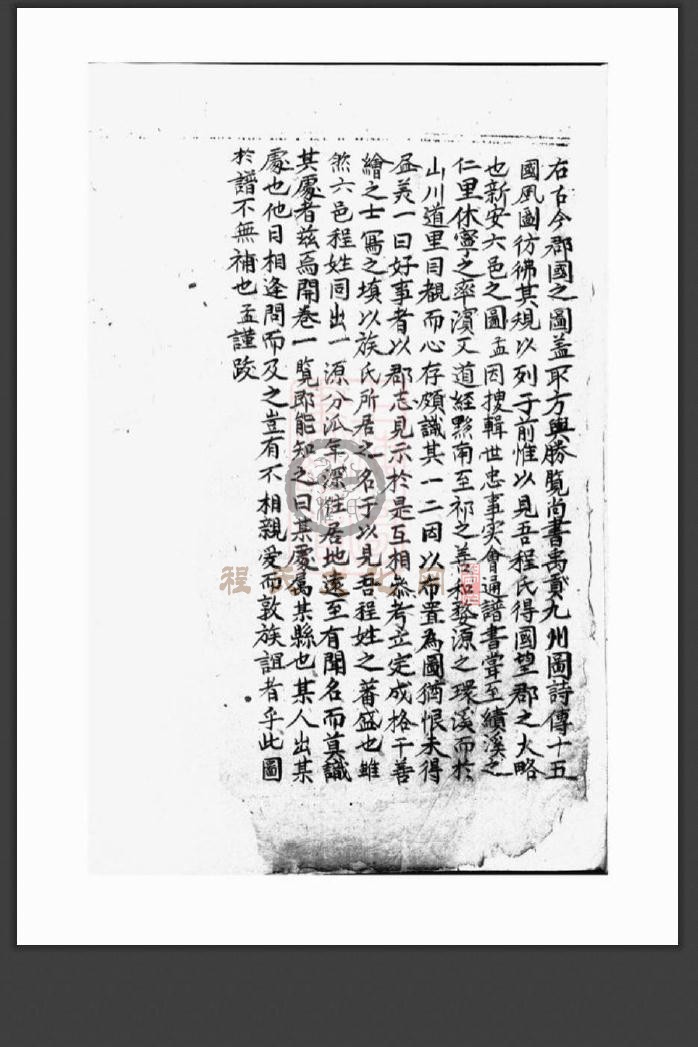 右古今郡國之圖盖取方輿勝覧尚書禹貢九州圖詩傳十五
國風圖彷彿其規以列于前惟以見吾程氏得國望郡之大略
也新安六邑之圖孟因搜輯世忠事實會通譜書嘗至績溪之
仁里休寧之率濵又道經黟南至祁之善和婺源之環溪而於
山川道里目覩而心存頗識其一二因以布置為圖猶恨未得
盡美一曰好事者以郡志見示於是互相叅考立定成格干善
繪之士寫之填以族氏所居之名于以見吾程姓之蕃盛也雖
然六邑程姓同出一源分派年深徃居地逺至有聞名而莫識
其處者兹焉開卷一覧即能知之曰某處屬某縣也某人出某
處也他日相逢問而及之豈有不相親爱而敦族誼者乎此圖
於譜不無補也孟謹跋
程氏文化网